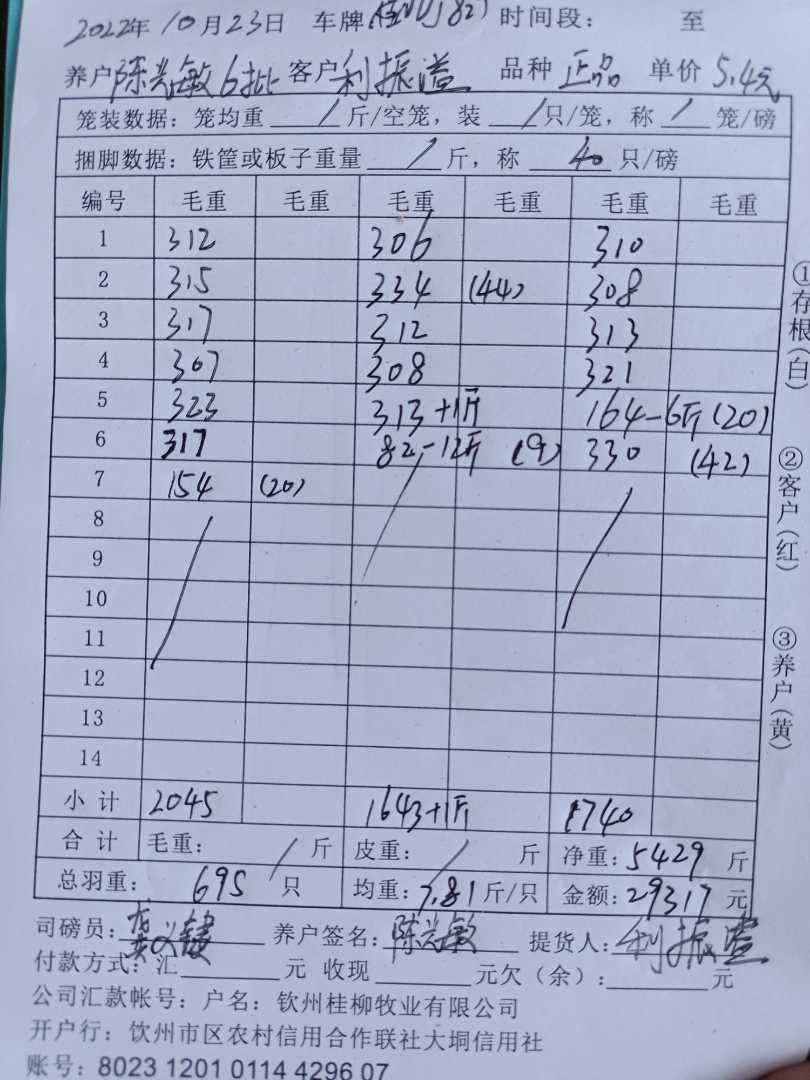 2022年10月23日 车牌 时间段： 至
养户 陈兴敏6批 客户 利振溢 品种 正品 单价 5.4元
笼装数据：笼均重 / 斤/空笼，装 / 只/笼，称 / 笼/磅
捆脚数据：铁筐或板子重量 / 斤，称 40 只/磅
编号 毛重 毛重 毛重 毛重 毛重 毛重
1 312 306 310
2 315 334 (44) 308
3 317 312 313
4 307 308 321
5 323 313+1斤 164-6斤(20)
6 317 82-12斤 (9) 330 (42)
7 154 (20)
8
9
10
11
12
13
14
小计 2045 1643+1斤 1740
合计 毛重： / 斤 皮重： / 斤 净重：5429 斤
总羽重： 695 只 均重：7.81 斤/只 金额：29317 元
司磅员： 养户签名：陈兴敏 提货人：利振溢
付款方式：汇 元 收现 元欠（余）： 元
公司汇款帐号：户名：钦州桂柳牧业有限公司
开户行：钦州市区农村信用合作联社大垌信用社
账号：8023 1201 0114 4296 07
①存根（白）
②客户（红）
③养户（黄）